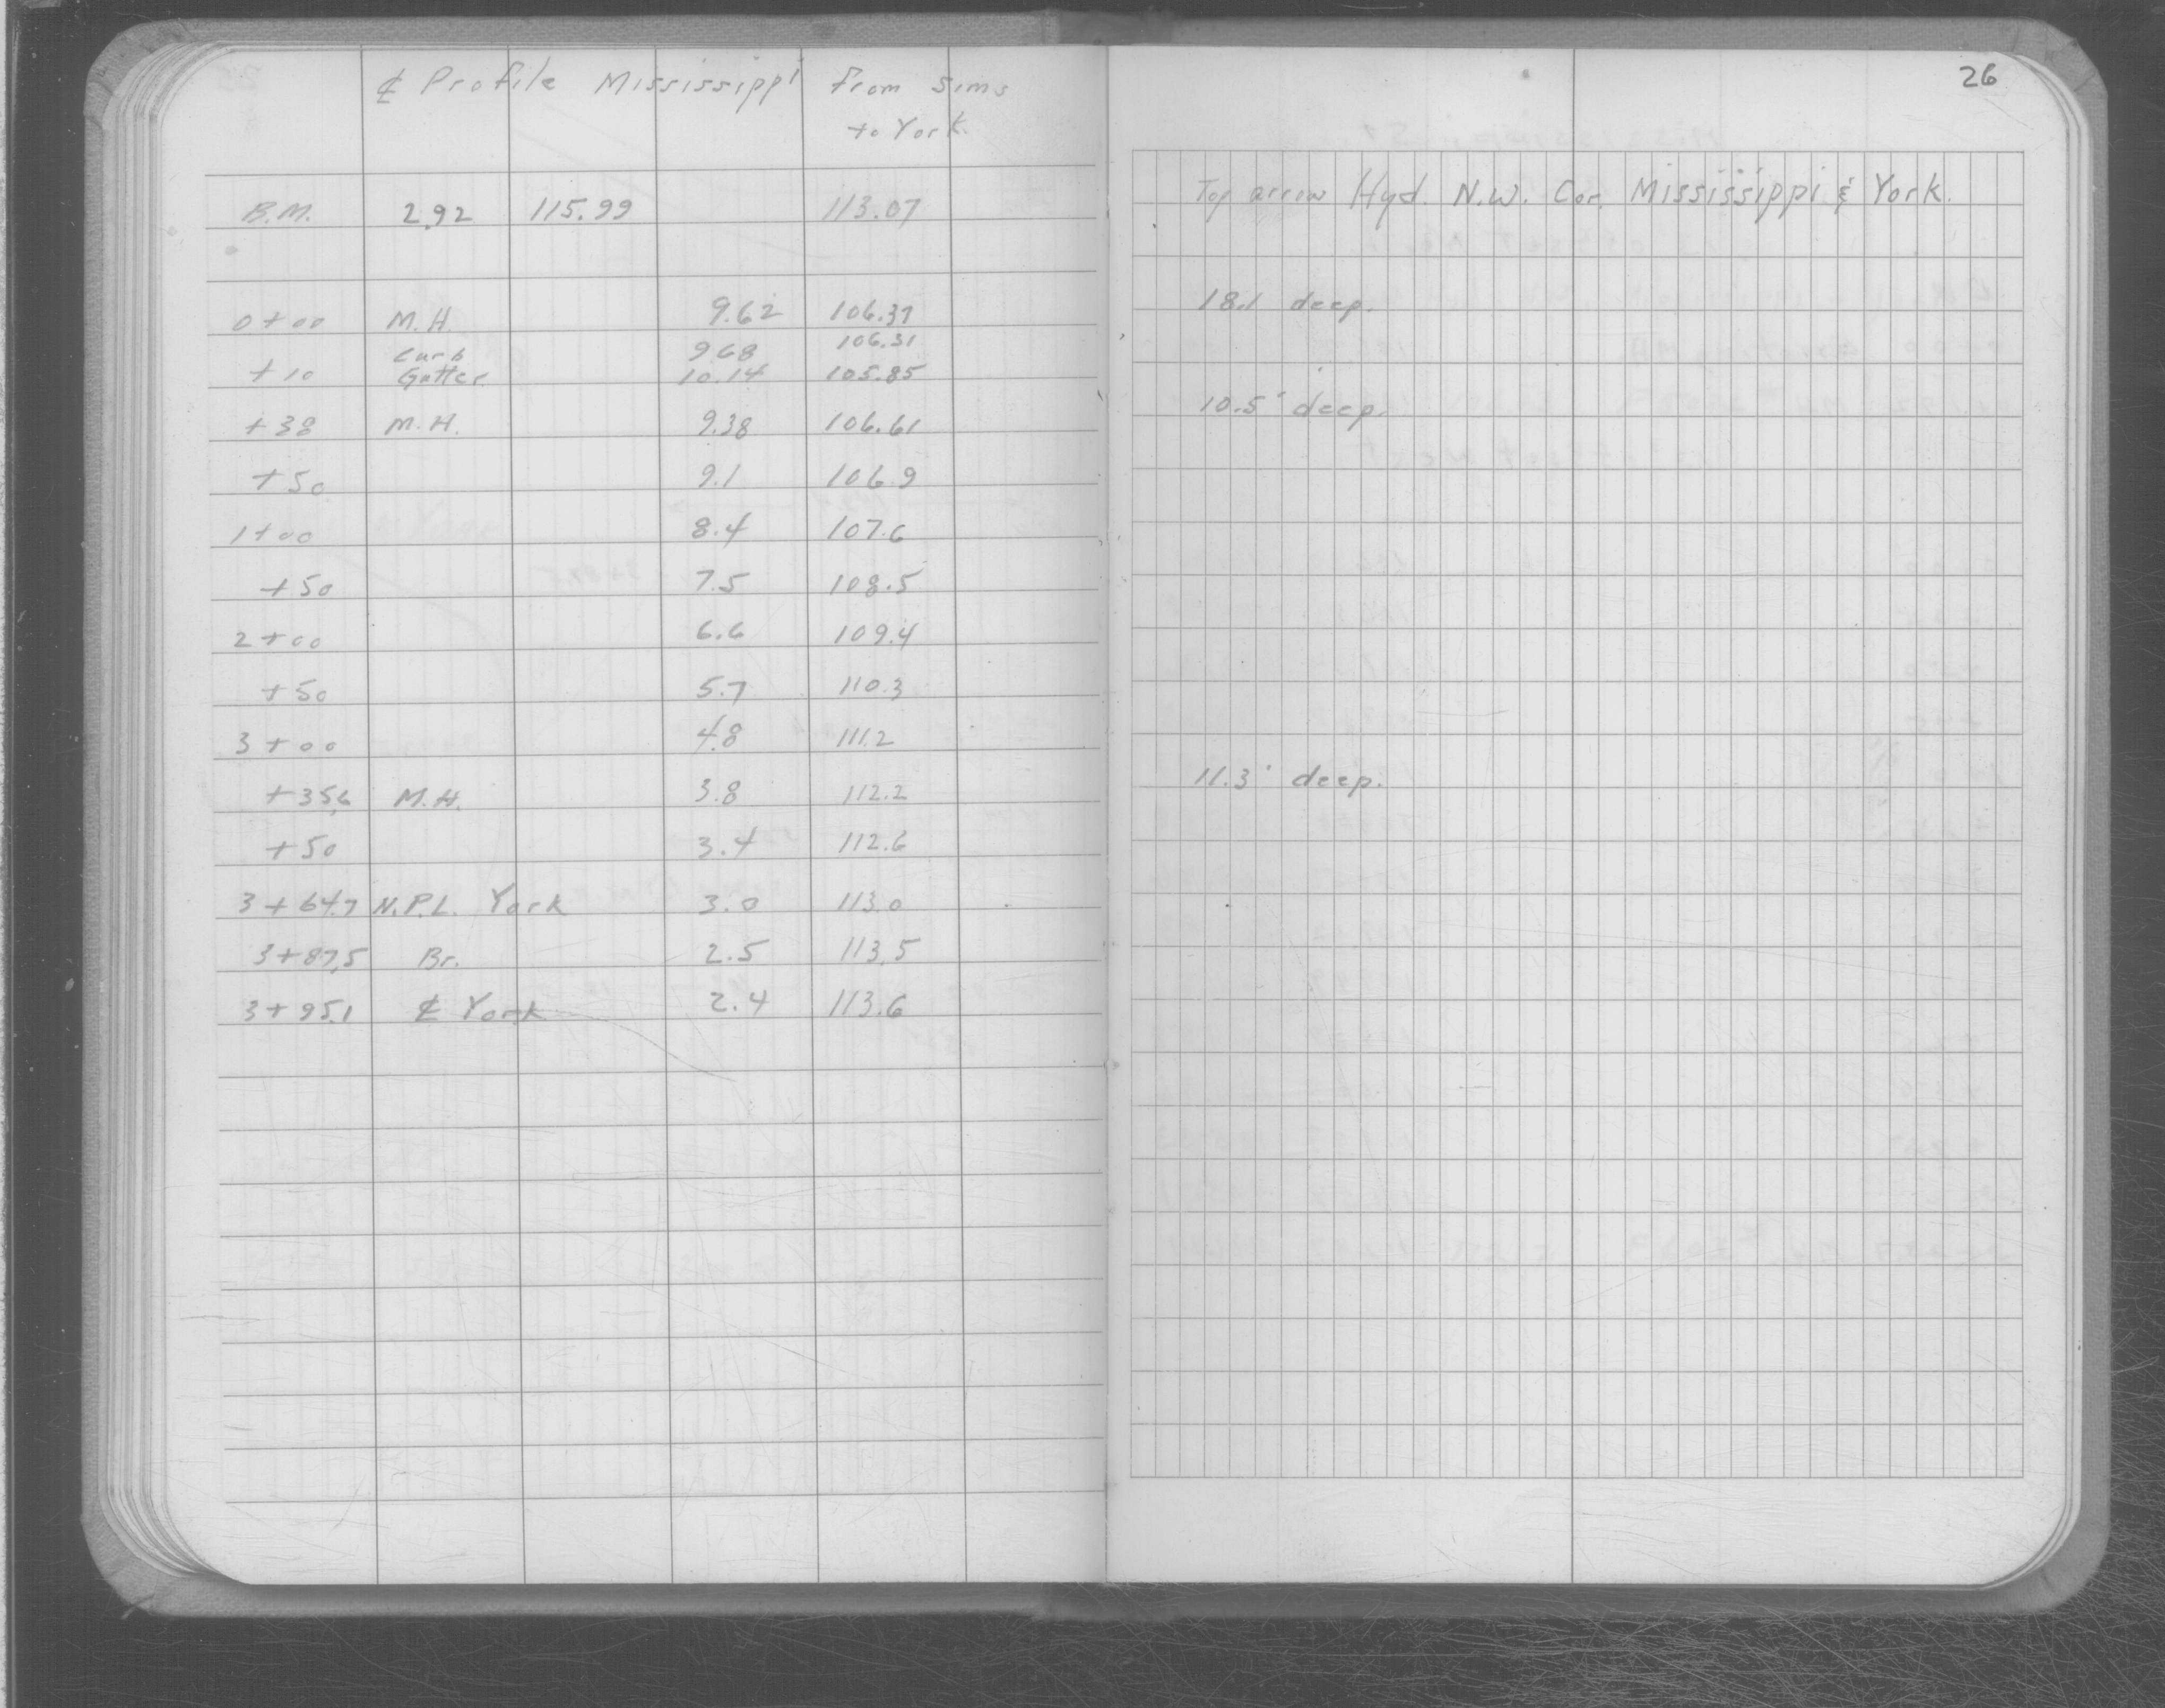 ℄ Profile Mississippi from Sims
to York.
26
B.M. 2.92 115.99 113.07 Top arrow Hyd. N.W. Cor. Mississippi & York.
0+00 M.H. 9.62 106.37 18.1 deep.
Curb 9.68 106.31
+10 Gutter 10.14 105.85
+38 M.H. 9.38 106.61 10.5' deep.
+50 9.1 106.9
1+00 8.4 107.6
+50 7.5 108.5
2+00 6.6 109.4
+50 5.7 110.3
3+00 4.8 111.2
+35.6 M.H. 3.8 112.2 11.3' deep.
+50 3.4 112.6
3+64.7 N.P.L. York 3.0 113.0
3+87.5 Br. 2.5 113.5
3+95.1 ℄ York 2.4 113.6